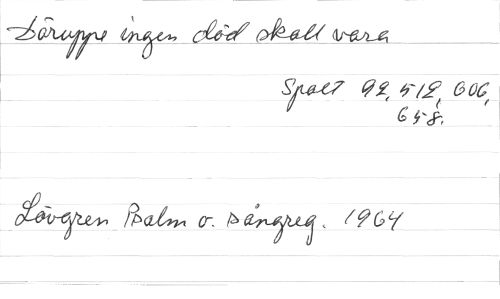 Däruppe ingen död skall vara
Spalt 92, 512, 606,
658.
Lövgren Psalm o. sångreg. 1964